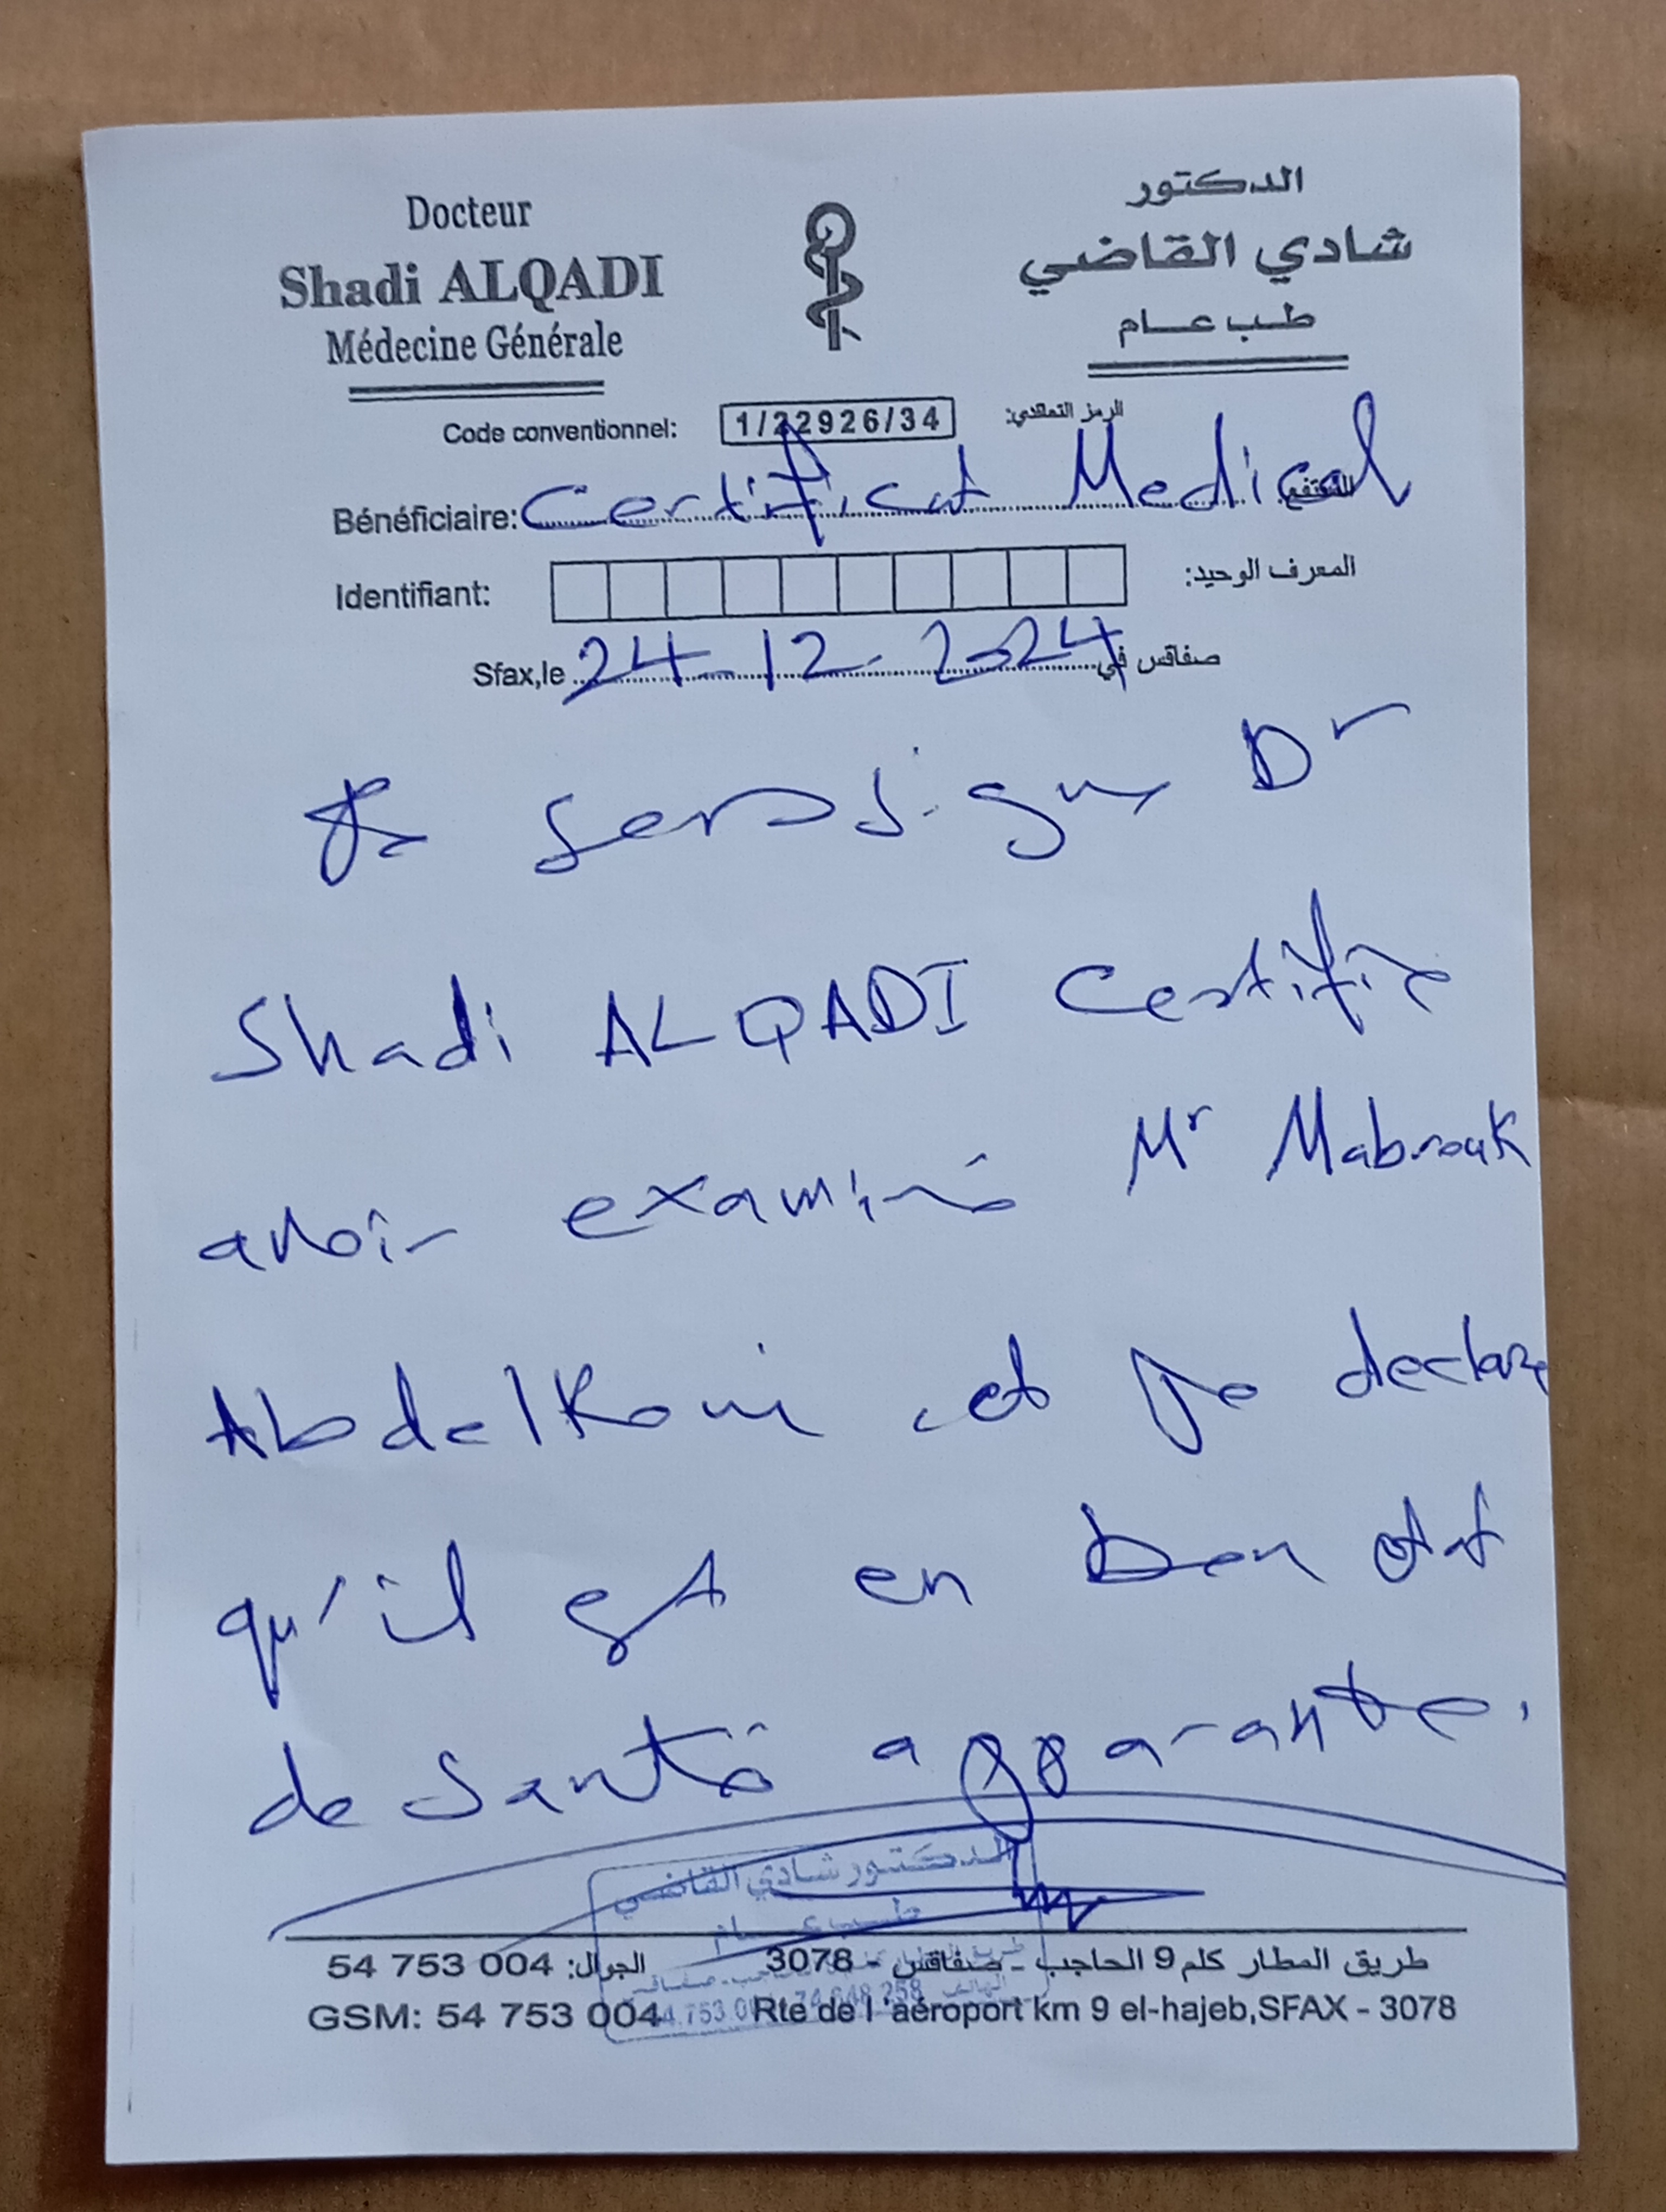 Docteur
Shadi ALQADI
Médecine Générale
الدكتور
شادي القاضي
طب عام
Code conventionnel: 1/22926/34 الرمز التعاقدي:
Bénéficiaire: Certificat Medical
Identifiant: المعرف الوحيد:
Sfax,le 24-12-2024 صفاقس في
Je Dr
Shadi ALQADI Certifie
avoir examiné Mr Mabrouk
et Je declare
qu'il est en bon etat
de Santé apparante.
الدكتور شادي القاضي
طب عام
54 753 004 الجوال:
طريق المطار كلم 9 الحاجب - صفاقس - 3078
GSM: 54 753 004 Rte de l'aéroport km 9 el-hajeb,SFAX - 3078